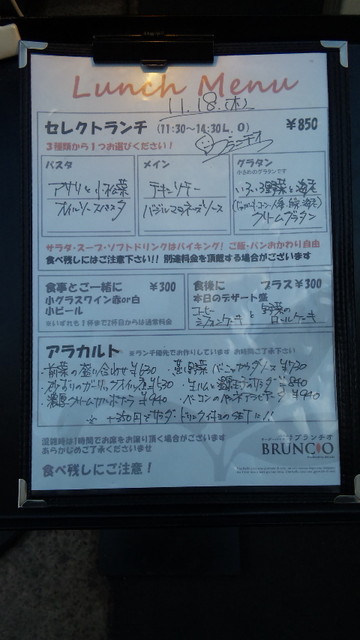 Lunch Menu
11.18.(木)
セレクトランチ (11:30~14:30L.O) ¥850
3種類から1つお選びください!
ブランチオ
パスタ
アサリと小松菜
オイルソースパスタ
メイン
チキンソテー
バジルマヨネーズソース
グラタン
小さめのグラタンです
いろいろ野菜と海老
クリームグラタン
サラダ・スープ・ソフトドリンクはバイキング! ご飯・パンおかわり自由
食べ残しにはご注意下さい!! 別途料金を頂戴する場合がございます
食事とご一緒に ¥300
小グラスワイン赤or白
小ビール
※いずれも1杯まで2杯目からは通常料金
食後に プラス¥300
本日のデザート盛
コーヒー
シフォンケーキ と 野菜の
ロールケーキ
アラカルト ※ランチ優先でお作りしています お時間ご了承下さい
・前菜の盛り合わせ ¥630 ・蒸し野菜 バーニャカウダソース ¥730
¥530 ¥840
濃厚クリームカルボナーラ ¥940 ¥940
※ +350円でサラダ・ドリンクバイキングSETに!!
混雑時は1時間でお席をお譲り頂く場合がございます
あらかじめご了承くださいませ
食べ残しにご注意!
ブランチオ
BRUNCIO